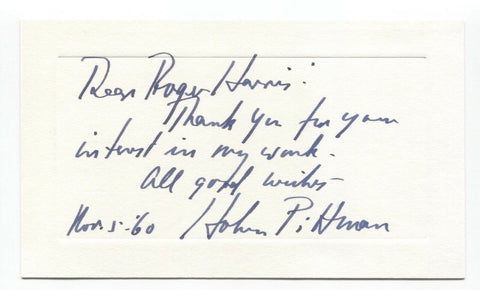 Dear Roger Harris:
Thank you for your
interest in my work.
All good wishes -
Nov. 5 - '60 Hobson Pittman